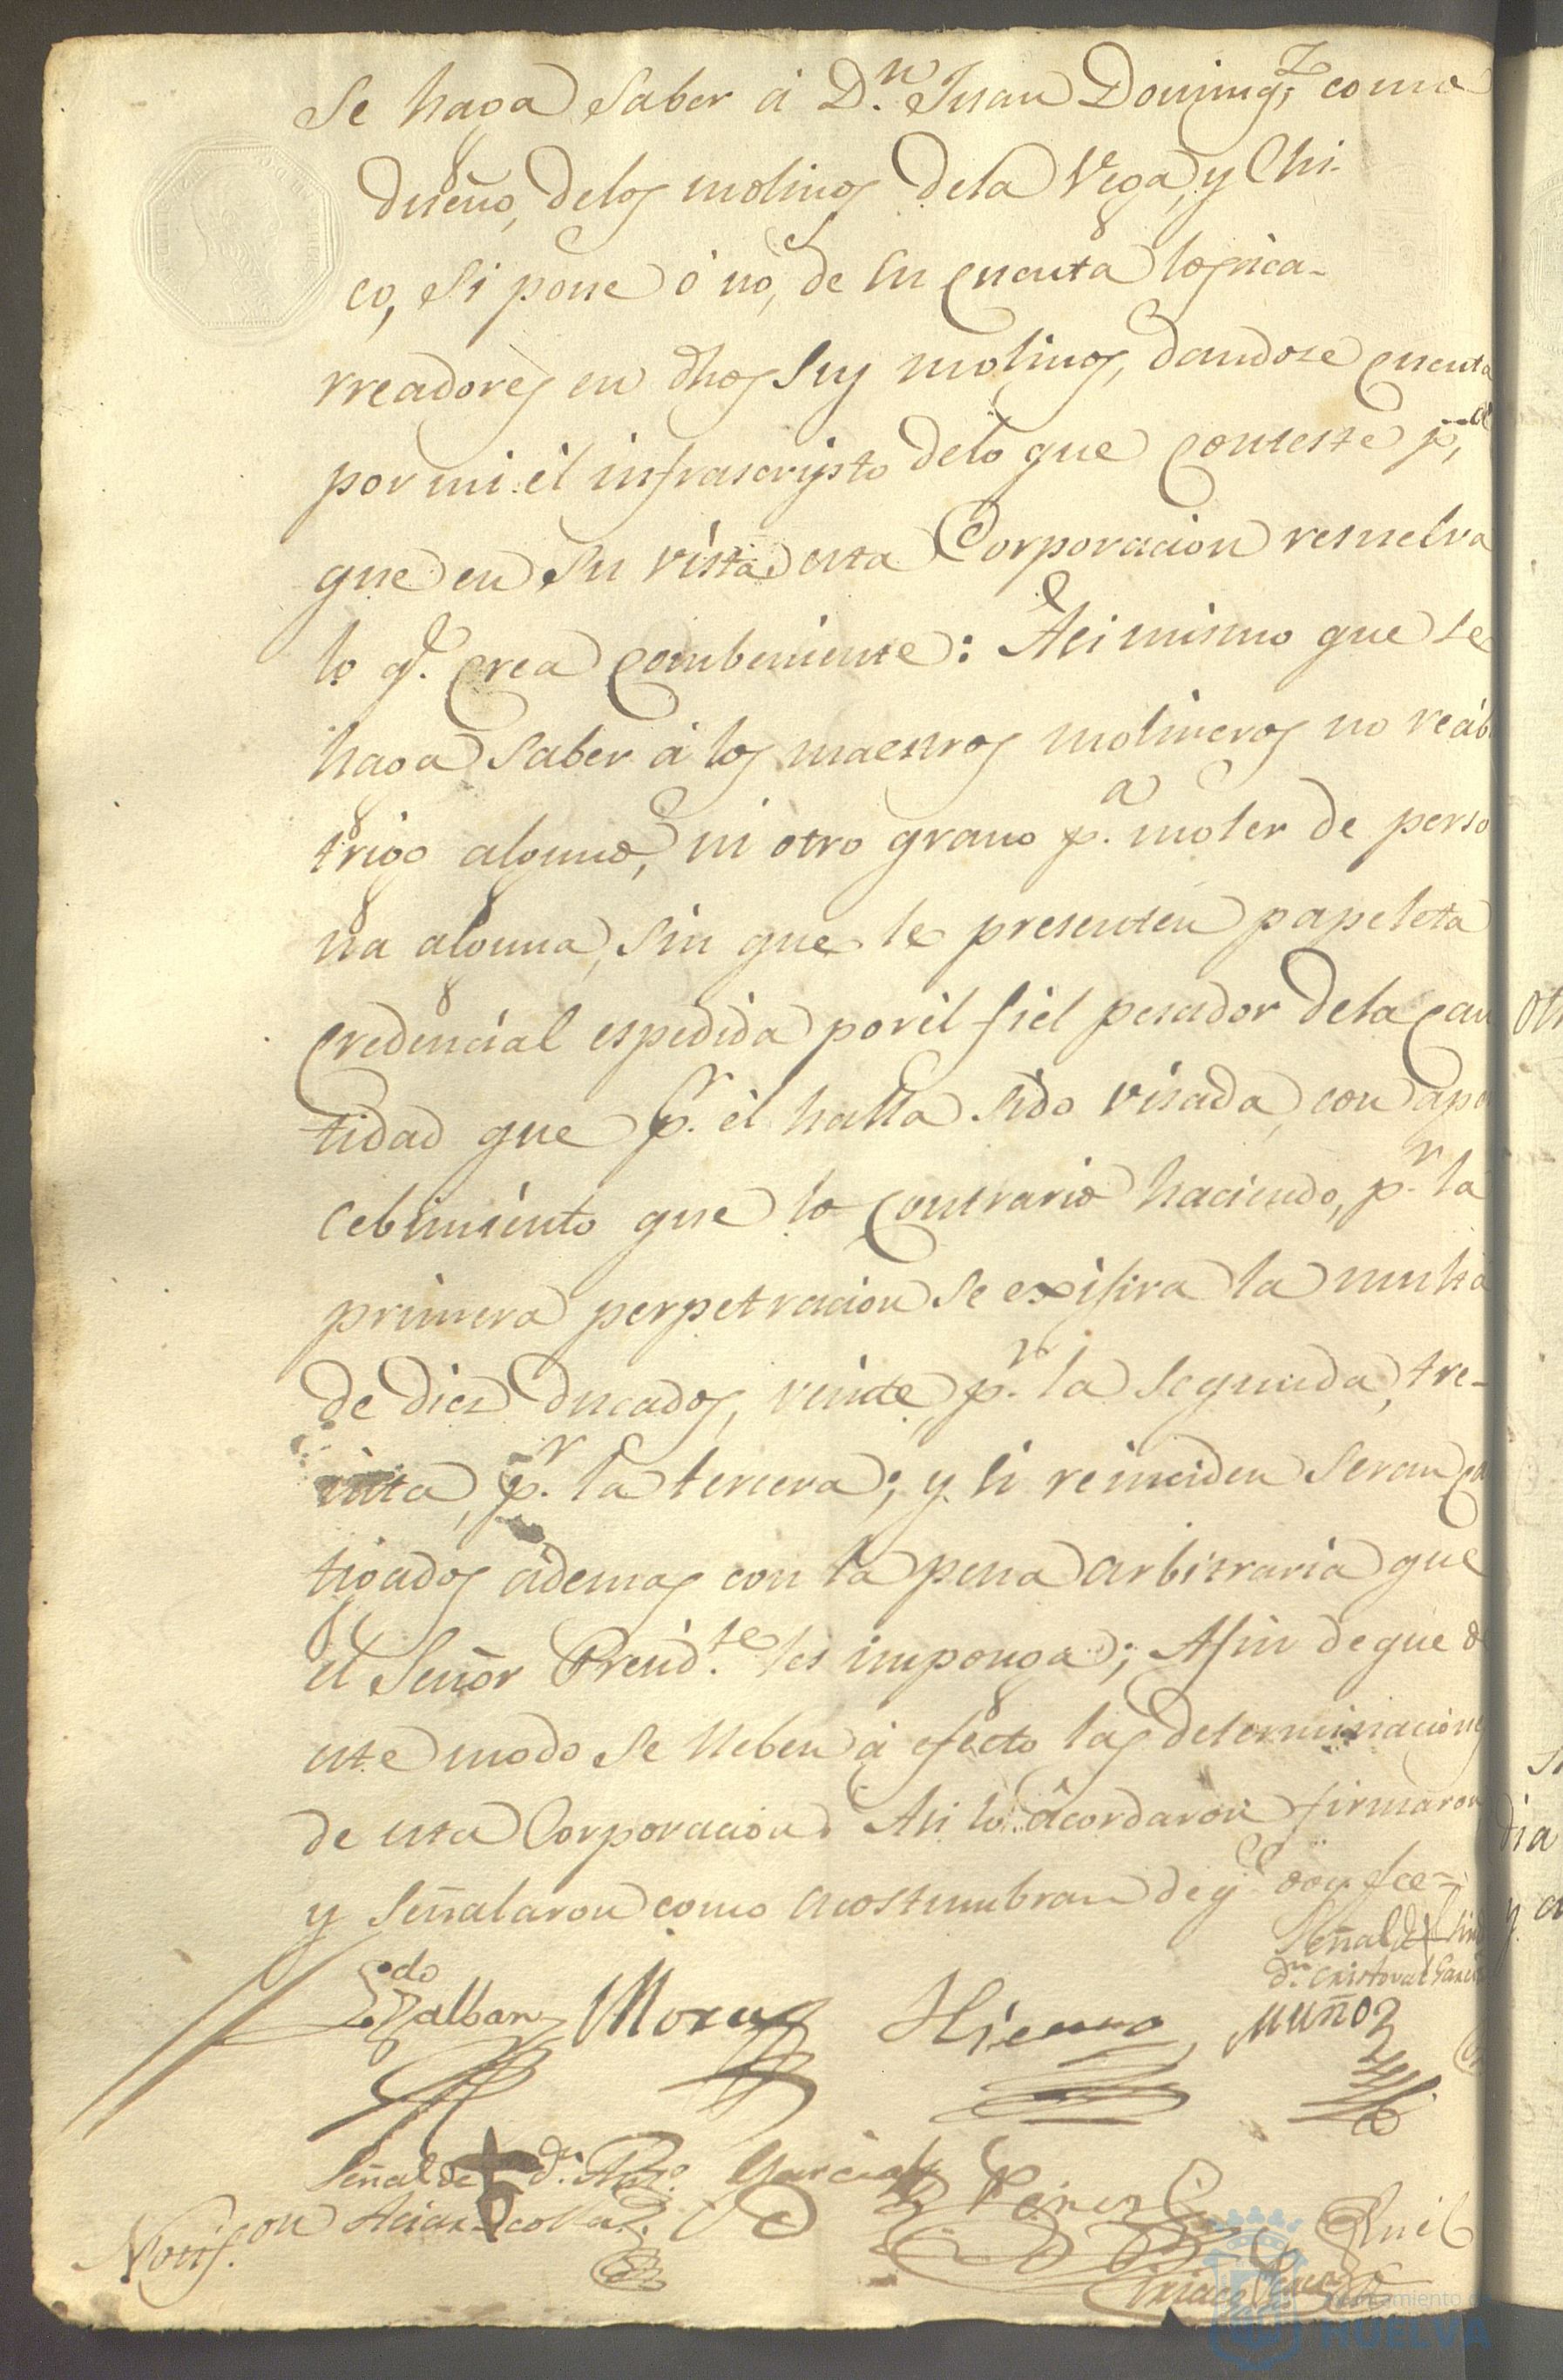 Se haga saber á D.n Juan Doming.z como
dueño, delos molinos dela Vega, y Chi-
co, si pone ó no, de su cuenta los aca-
rreadores en dhos sus molinos, dandose cuenta
por mi el infrascripto delo que conteste p.a
que en su vista esta Corporacion resuelva
lo q.e crea combeniente: Asi mismo que se
haga saber á los maestros molineros no reáb
trigo alguno, ni otro grano p.a moler de perso
na alguna, sin que le presenten papeleta
credencial espedida por el fiel pesador dela can
tidad que p.r él halla sido visada, con aper
cebimiento que lo contrario haciendo, p.r la
primera perpetracion se exisira la multa
de diez ducados, veinte p.r la segunda, tre-
inta, p.r la tercera; y si reinciden seran cas
tigados ademas con la pena arbitraria que
el Señor Presid.te les imponga; Afin de que de
este modo se lleben á efecto las determinaciones
de esta Corporacion. Asi lo acordaron firmaron
y señalaron como acostumbran de q.e doy fee=
Señal de
D.n Cristoval Garcia
Ldo Zalbany Mora Hierro Muñoz
Señal de D.n
Garcia Perez
Notif.on
Quil
Ayuntamiento de
HUELVA